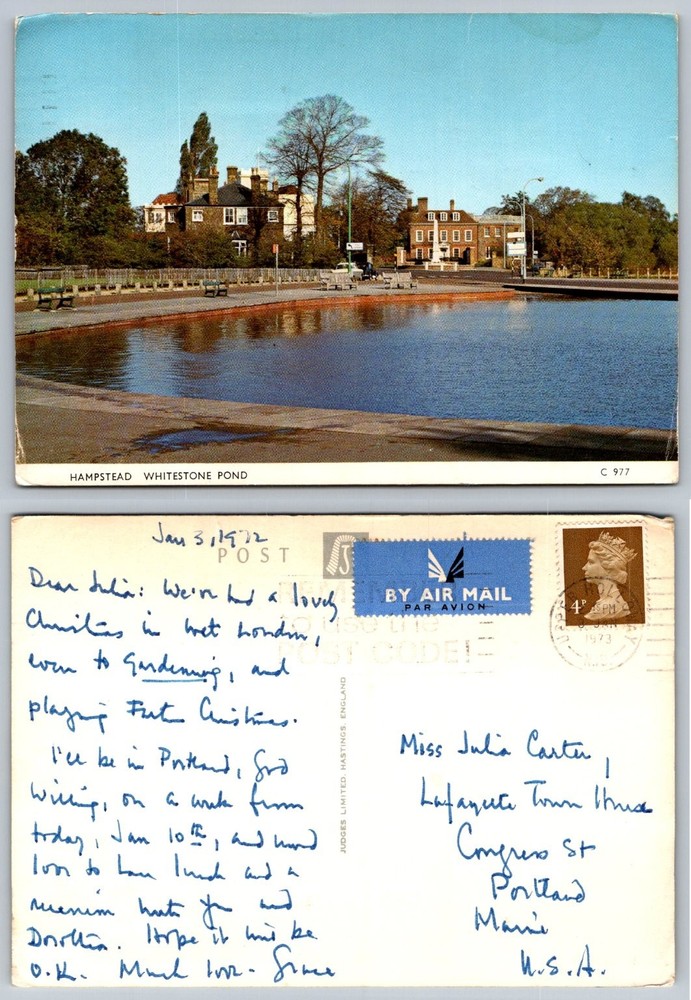 HAMPSTEAD WHITESTONE POND
C 977
Jan 3, 1972
POST
BY AIR MAIL
PAR AVION
4P
PM
JAN
1973
REMEMBER
to use the
POST CODE!
Dear Julia: We've had a lovely
Christmas in wet London,
even to Gardening, and
playing Christmas.
I'll be in Portland, God
Willing, on a week from
today, Jan 10th, and would
love to have lunch and a
reunion with you and
Dorothea. Hope it will be
O.K. Much love - Grace
JUDGES LIMITED, HASTINGS, ENGLAND
Miss Julia Carter,
Lafayette Town House
Congress St
Portland
Maine
U.S.A.